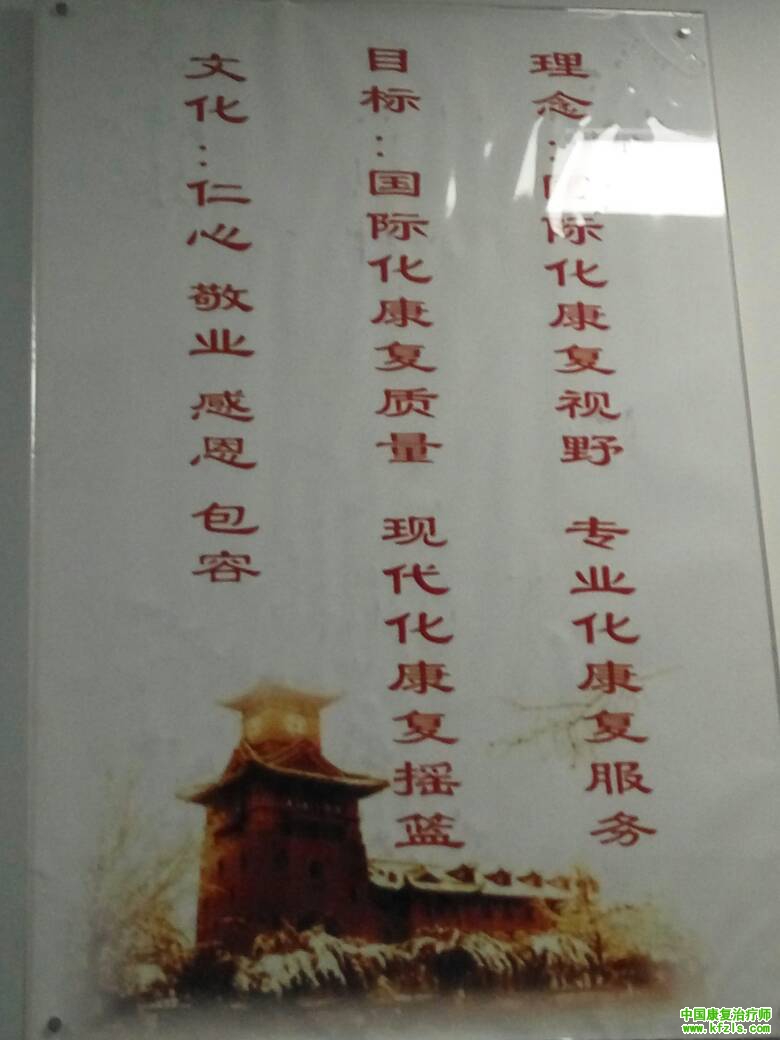 理念：国际化康复视野 专业化康复服务
目标：国际化康复质量 现代化康复摇蓝
文化：仁心 敬业 感恩 包容
中国康复治疗师
www.kfzls.com